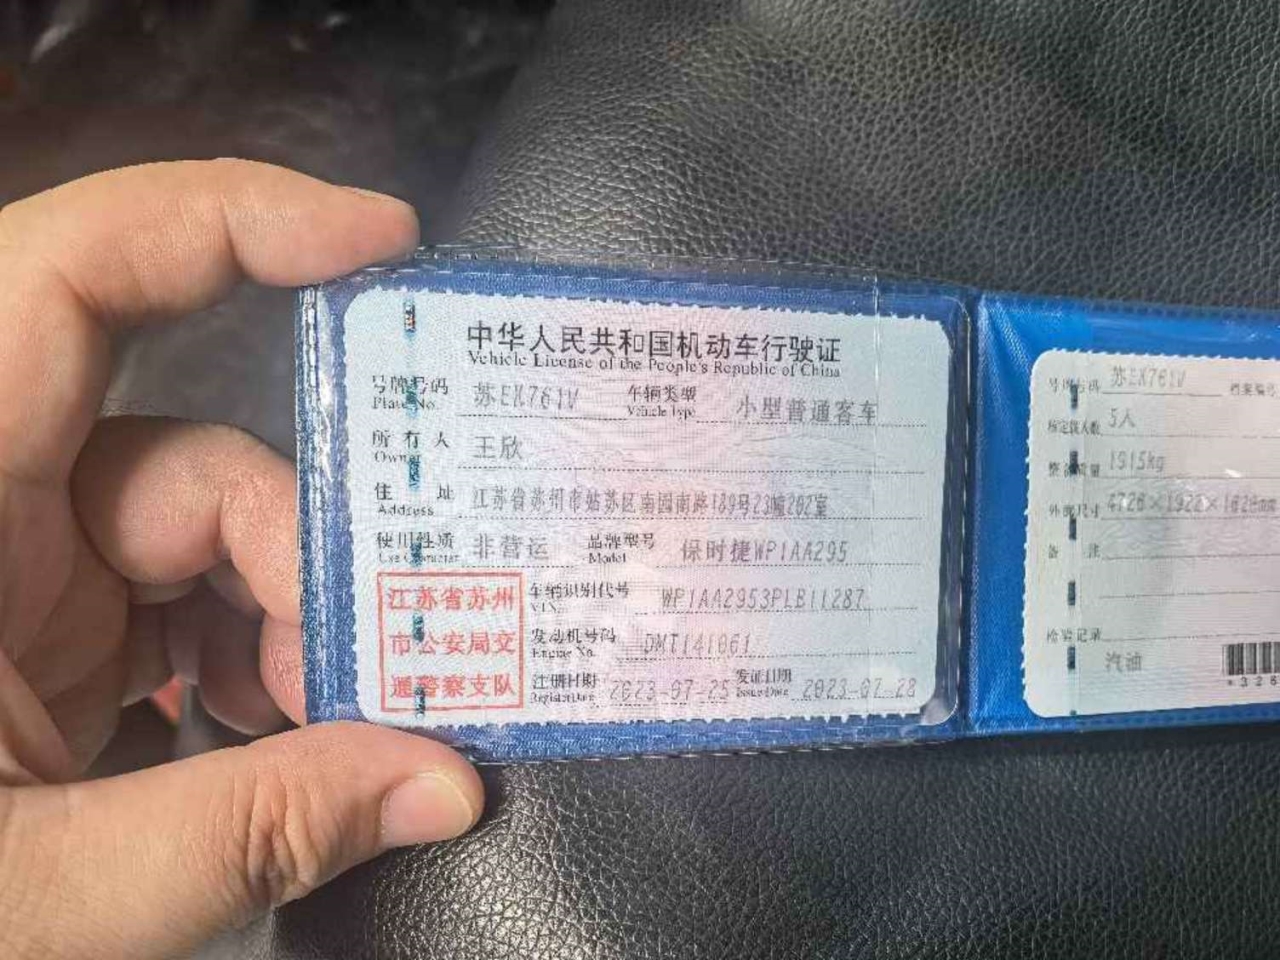 中华人民共和国机动车行驶证
Vehicle License of the People's Republic of China
号牌号码 苏EX761V 车辆类型 小型普通客车
Plate No. Vehicle Type
所有人 王欣
Owner
住址 江苏省苏州市姑苏区南园南路189号23幢202室
Address
使用性质 非营运 品牌型号 保时捷WP1AA295
Use Character Model
江苏省苏州
市公安局交
通警察支队
车辆识别代号 WP1AA2953PLB11287
VIN
发动机号码 DMT141061
Engine No.
注册日期 2023-07-25 发证日期 2023-07-28
Register Date Issue Date
号牌号码 苏EX761V 档案编号
核定载人数 5人
整备质量 1915kg
外廓尺寸 4726×1922×1628mm
备注
检验记录
汽油
*326